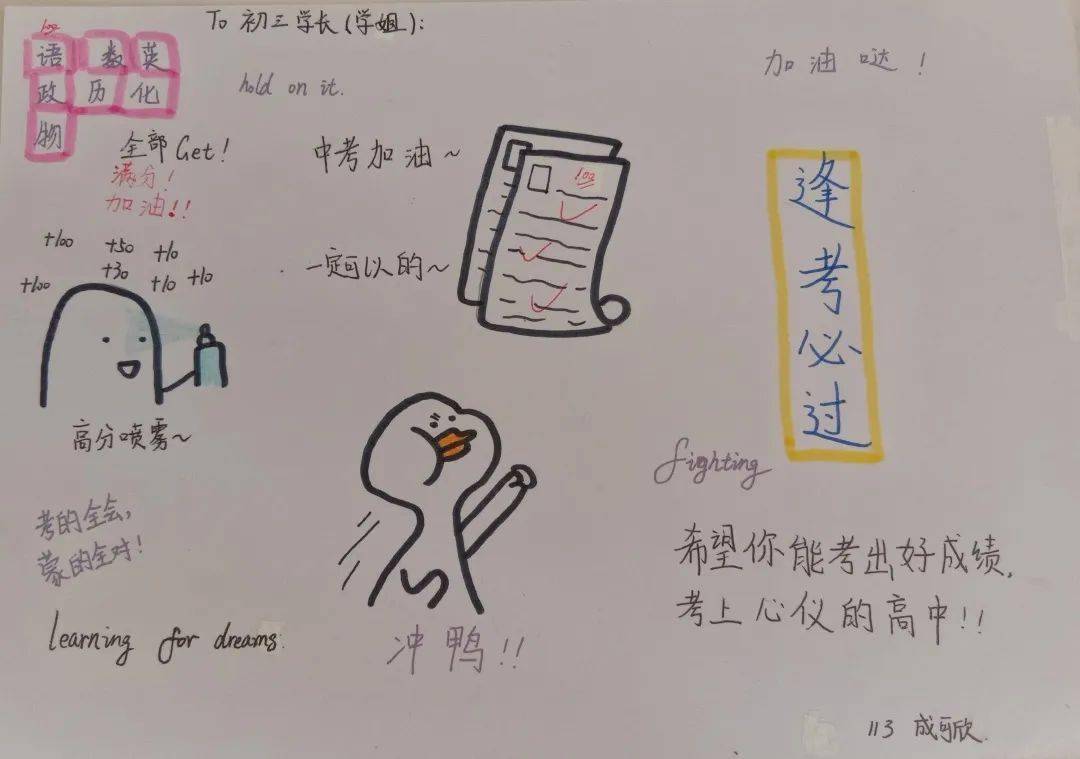 To 初三学长(学姐):
100
语 数 英
政 历 化
物
hold on it.
加油哒!
全部Get!
满分!
加油!!
中考加油~
100
一定可以的~
逢考必过
+100 +50 +10
+100 +30 +10 +10
高分喷雾~
fighting
考的全会,
蒙的全对!
希望你能考出好成绩,
考上心仪的高中!!
learning for dreams.
冲鸭!!
113 成可欣